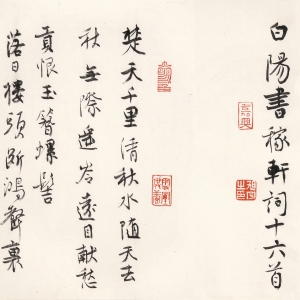 白陽書稼軒詞十六首
楚天千里清秋水隨天去
秋無際遙岑遠目獻愁
貢恨玉簪螺髻
落日樓頭斷鴻聲裏